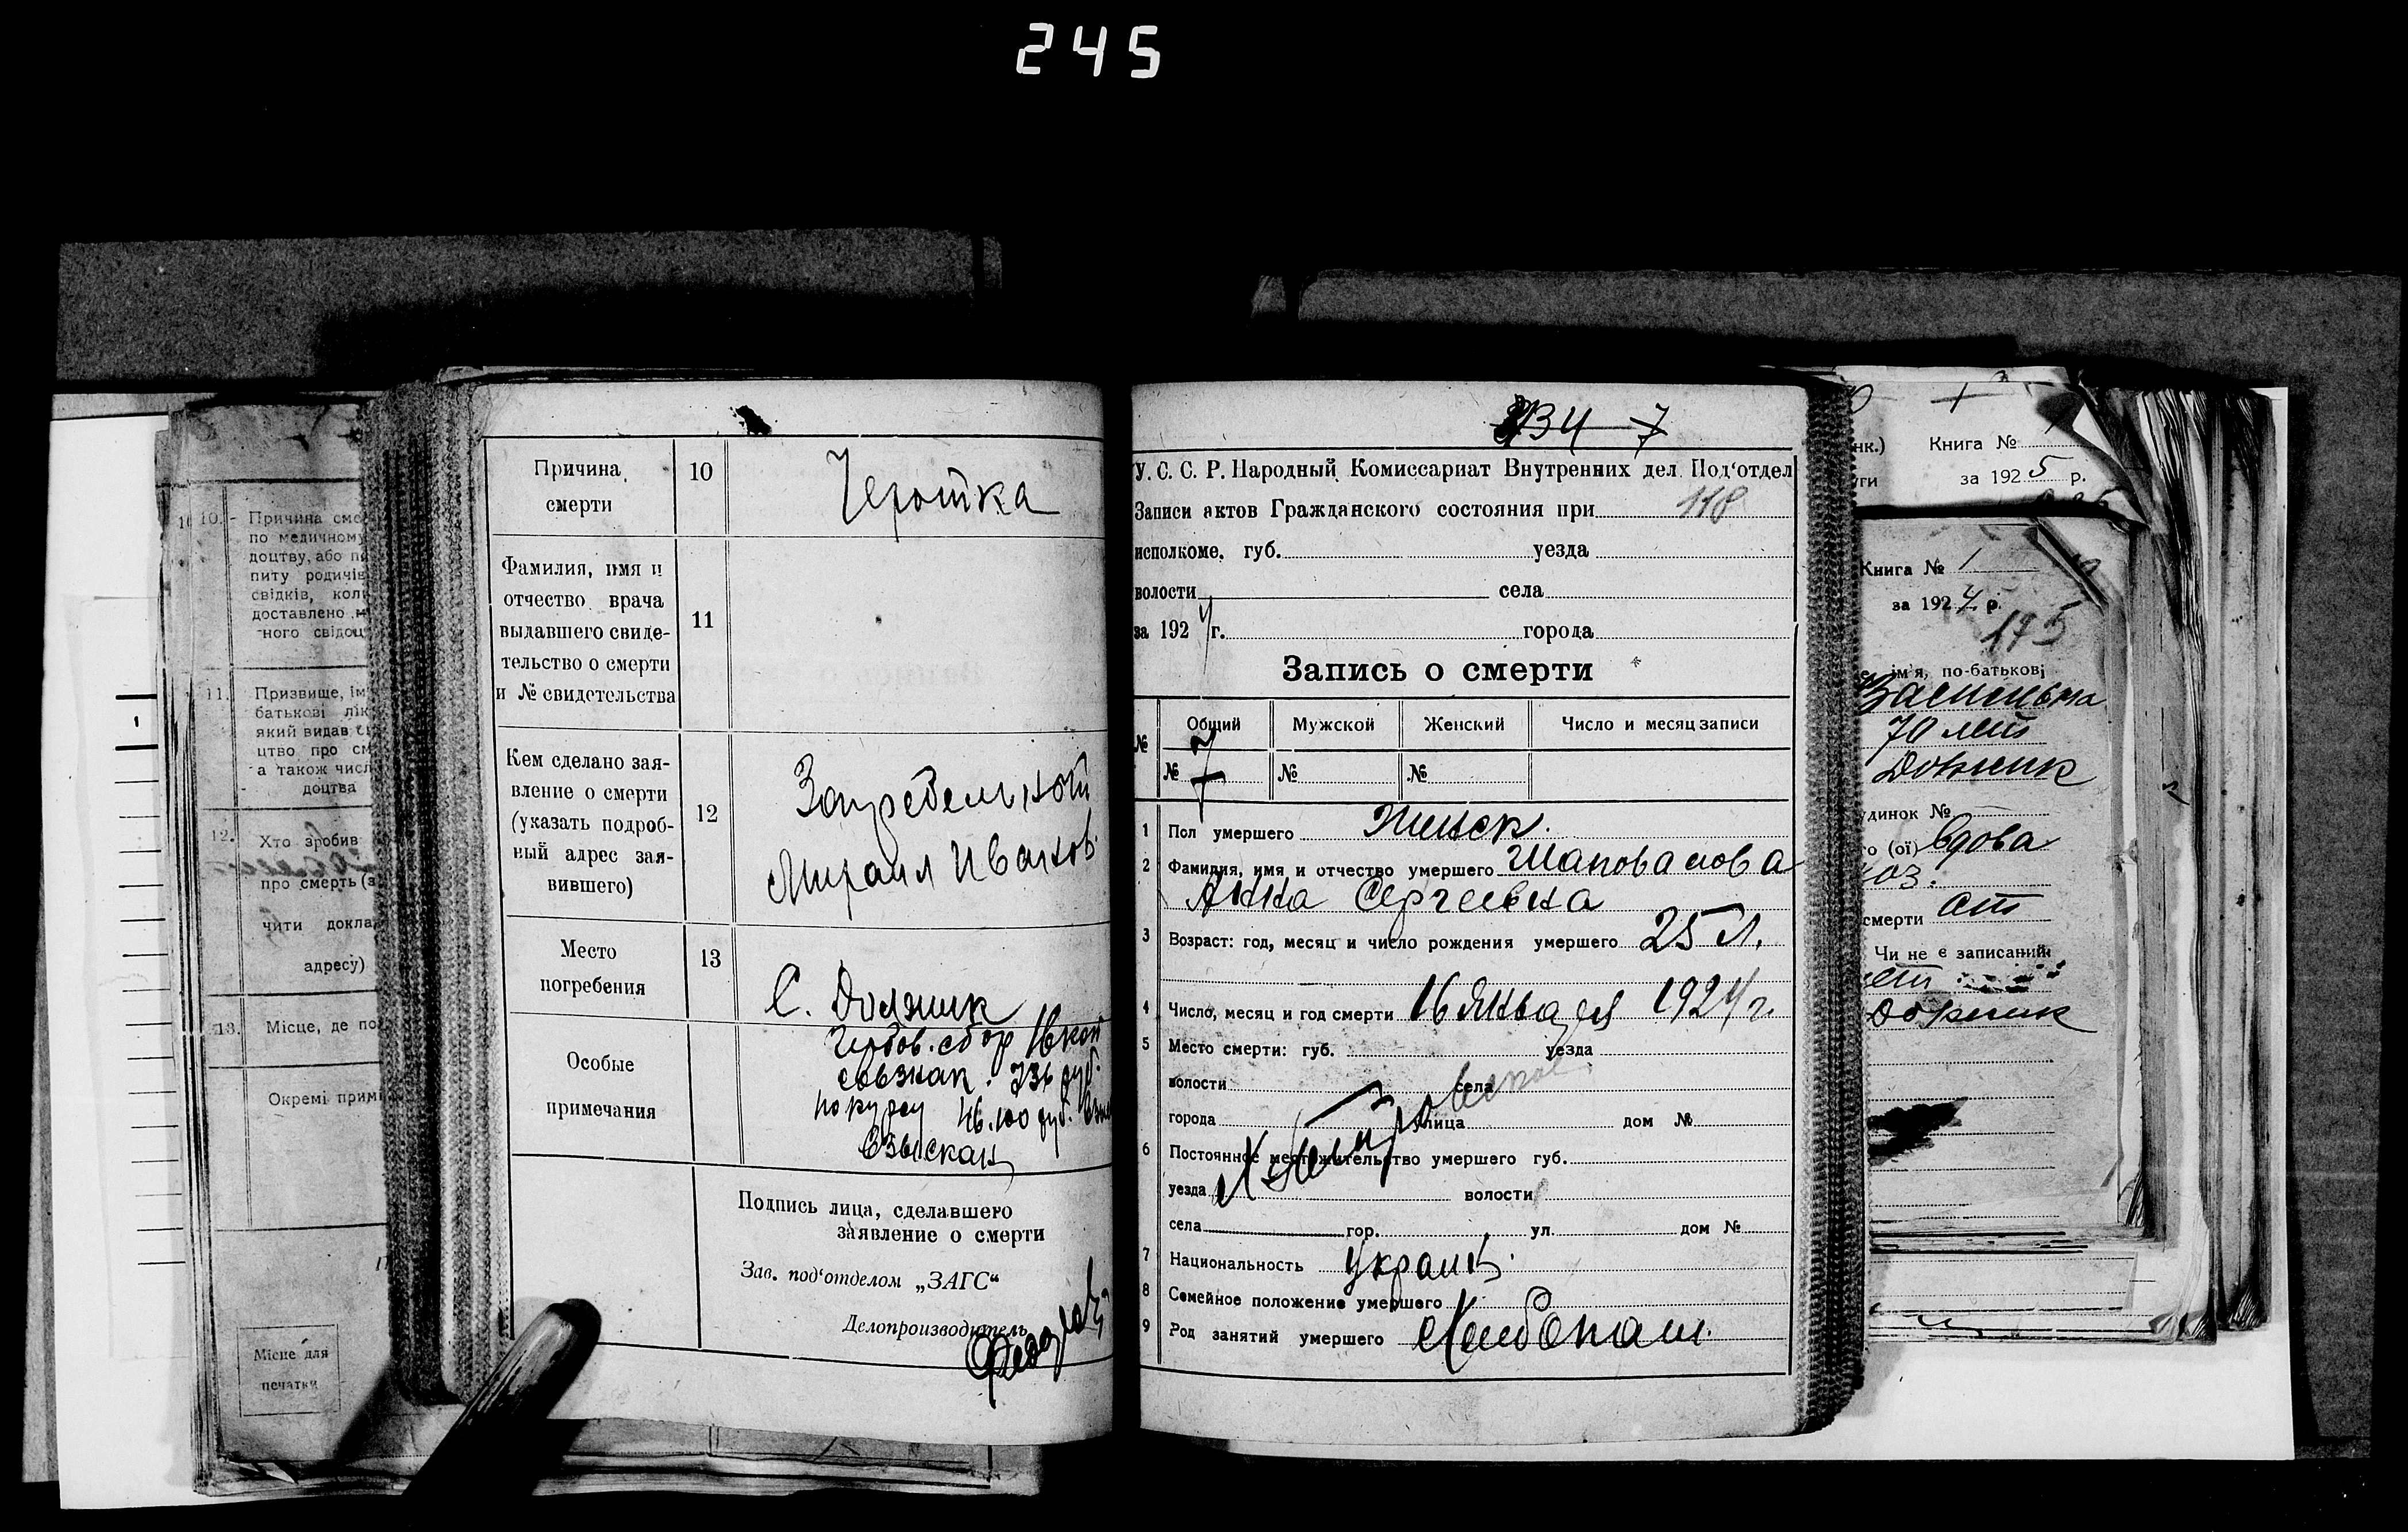 245
Причина
смерти
10
Чепотка
Фамилия, имя и
отчество врача
выдавшего свиде-
тельство о смерти
и № свидетельства
11
Кем сделано зая-
вление о смерти
(указать подроб-
ный адрес зая-
вившего)
12
Михаил Иванов.
Место
погребения
13
С. Должик
Особые
примечания
Гербов. сбор 16 коп
совзнак. 736 руб.
по курсу 46.100 руб.
взыскан
Подпись лица, сделавшего
заявление о смерти
Зав. под'отделом „ЗАГС“
Делопроизводитель
10.
Причина сме
по медичному
доцтву, або
питу родичів
свідків, кол
доставлено
ного свідоц
11.
Призвище, ім
батькові лік
який видав
цтво про см
а також числ
доцтва
12.
Хто зробив
про смерть
чити докла
адресу)
13.
Місце, де по
Окремі примі
Місце для
печатки
7
У. С. С. Р. Народный Комиссариат Внутренних дел Под'отдел
Записи актов Гражданского состояния при 118
исполкоме, губ. уезда
волости села
за 1924 г. города
Запись о смерти
№ Общий Мужской Женский Число и месяц записи
№ 7 № №
1 Пол умершего Женск.
2 Фамилия, имя и отчество умершего Шаповалова
Анна Сергеевна
3 Возраст: год, месяц и число рождения умершего 25 л.
4 Число, месяц и год смерти 16 Января 1924 г.
5 Место смерти: губ. уезда
волости села
города улица дом №
6 Постоянное местожительство умершего губ.
уезда волости
села гор. ул. дом №
7 Национальность Украин.
8 Семейное положение умершего
9 Род занятий умершего Хлебопаш.
нк.) Книга № 1
уги за 1925 р.
Книга № 1
за 1924 р.
175
ім'я, по-батькові
70 лет
Должик
удинок №
о (ої) вдова
смерти от
Чи не є записаний